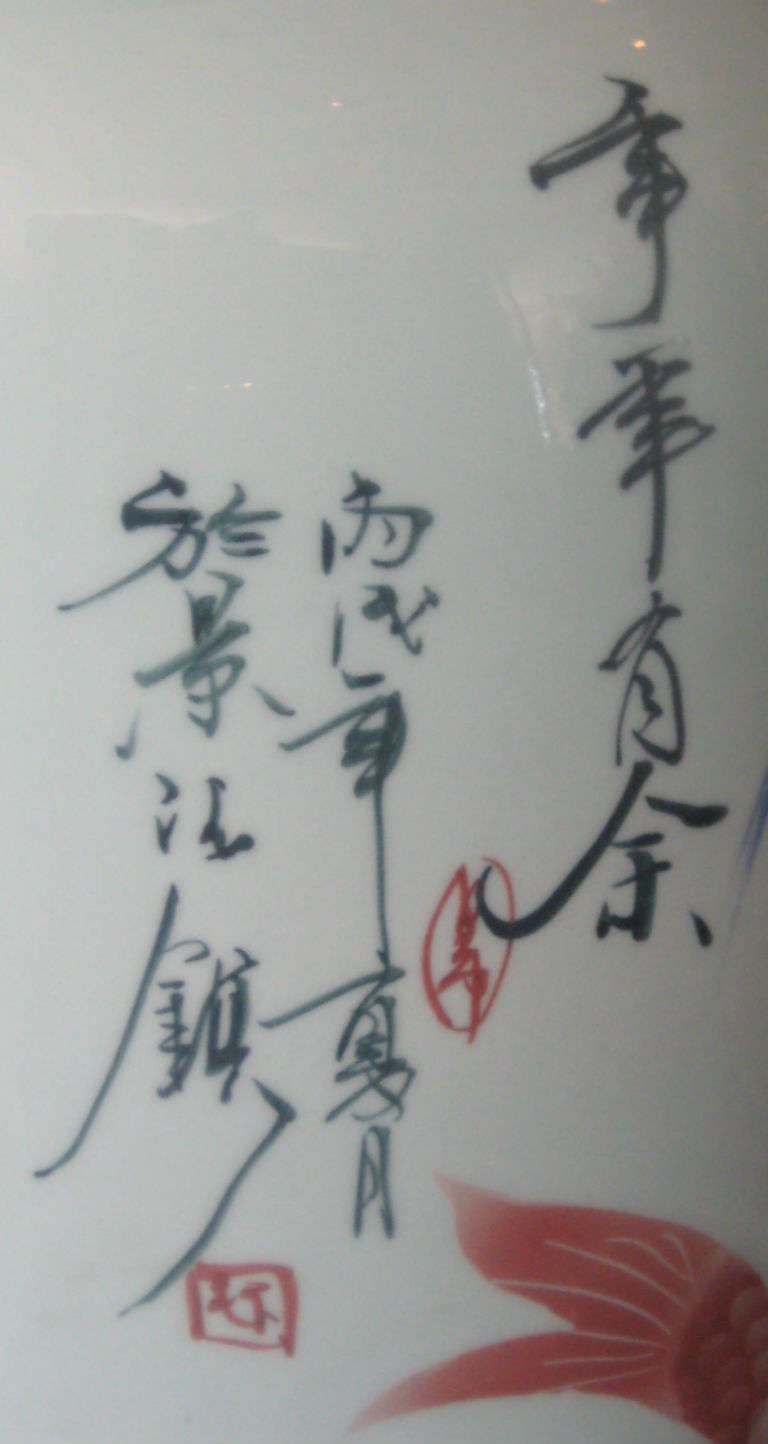 年年有余
丙戌年夏月
於景德鎮